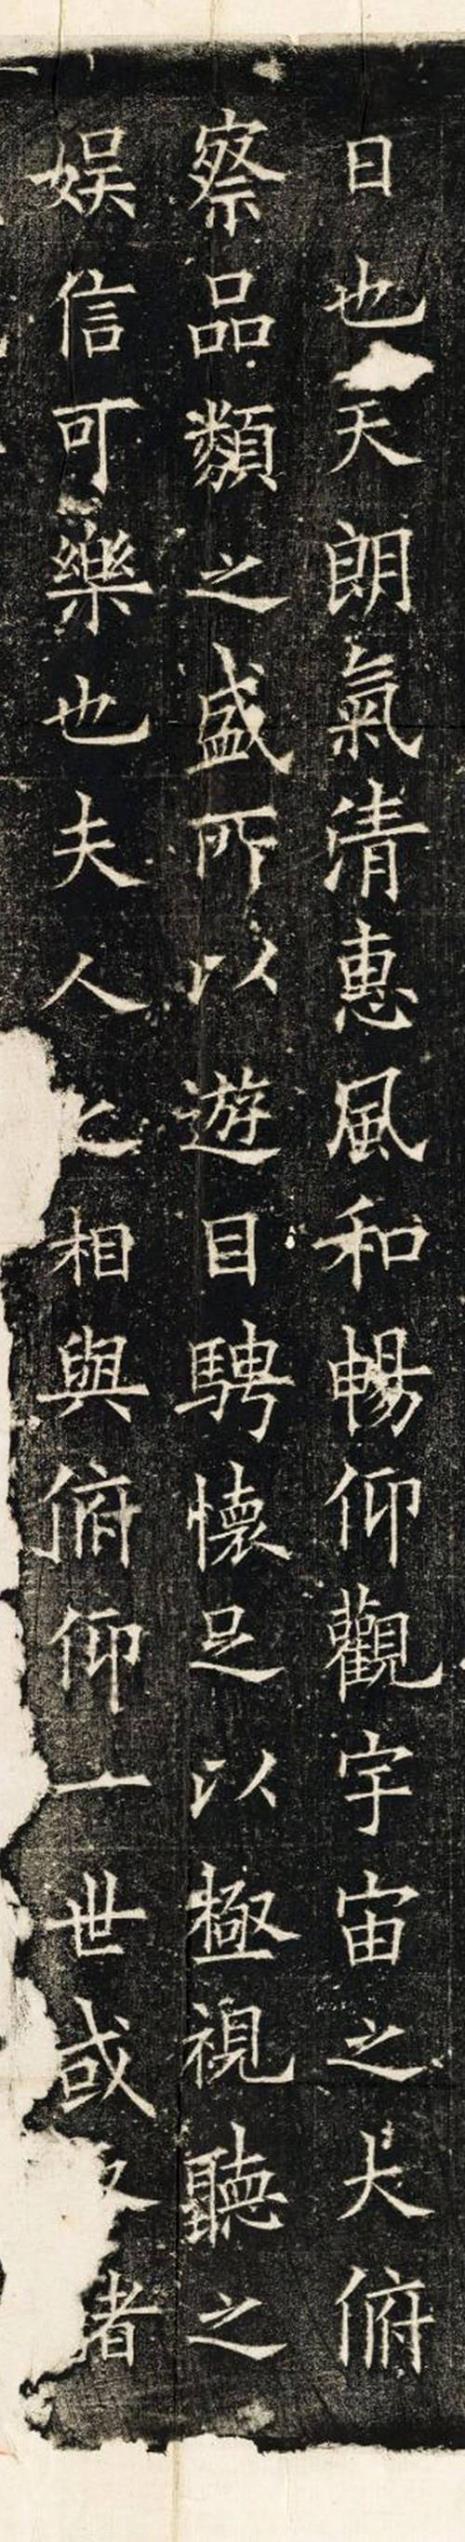 日也天朗氣清惠風和暢仰觀宇宙之大俯
察品類之盛所以遊目騁懷足以極視聽之
娱信可樂也夫人之相與俯仰一世或